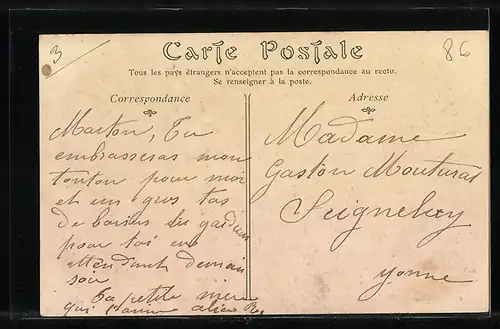 3
86
Carte Postale
Tous les pays étrangers n'acceptent pas la correspondance au recto.
Se renseigner à la poste.
Correspondance
Marton, Tu
embrasseras mon
tonton pour moi
et un gros tas
de baisers du
pour toi en
attendant demain
soir
Ta petite
qui t'aime alice
Adresse
Madame
Gaston Mouturat
Seignelay
Yonne